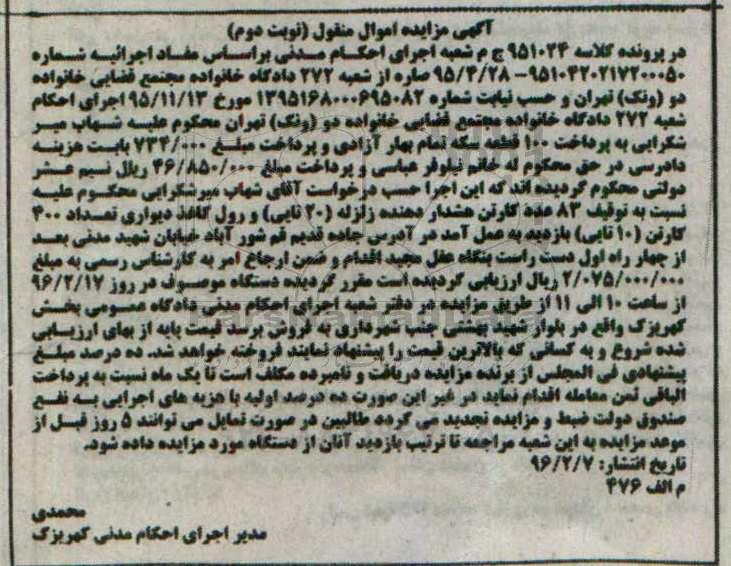 آگهی مزایده اموال منقول (نوبت دوم)
در پرونده کلاسه ۹۵۱۰۲۴ ج م شعبه اجرای احکام مدنی براساس مفاد اجرائیه شماره
۹۵۱۰۴۲۰۲۱۷۲۰۰۰۵۰–۹۵/۴/۲۸ صاره از شعبه ۲۷۲ دادگاه خانواده مجتمع قضایی خانواده
دو (ونک) تهران و حسب نیابت شماره ۱۳۹۵۱۶۸۰۰۰۶۹۵۰۸۲ مورخ ۹۵/۱۱/۱۳ اجرای احکام
شعبه ۲۷۲ دادگاه خانواده مجتمع قضایی خانواده دو (ونک) تهران محکوم علیه شهاب میر
شکرایی به پرداخت ۱۰۰ قطعه سکه تمام بهار آزادی و پرداخت مبلغ ۷۳۴/۰۰۰ بابت هزینه
دادرسی در حق محکوم له خانم نیلوفر عباسی و پرداخت مبلغ ۴۶/۸۵۰/۰۰۰ ریال نیم عشر
دولتی محکوم گردیده اند که این اجرا حسب درخواست آقای شهاب میرشکرایی محکوم علیه
نسبت به توقیف ۸۳ عدد کارتن هشدار دهنده زلزله (۲۰ تایی) و رول کاغذ دیواری تعداد ۴۰۰
کارتن (۱۰ تایی) بازدید به عمل آمد در آدرس جاده قدیم قم شور آباد خیابان شهید مدنی بعد
از چهار راه اول دست راست بنگاه عقل مجید اقدام و ضمن ارجاع امر به کارشناس رسمی به مبلغ
۲/۰۷۵/۰۰۰/۰۰۰ ریال ارزیابی گردیده است مقرر گردیده دستگاه موصوف در روز ۹۶/۲/۱۷
از ساعت ۱۰ الی ۱۱ از طریق مزایده در دفتر شعبه اجرای احکام مدنی دادگاه عمومی بخش
کهریزک واقع در بلوار شهید بهشتی جنب شهرداری به فروش برسد قیمت پایه از بهای ارزیابی
شده شروع و به کسانی که بالاترین قیمت را پیشنهاد نمایند فروخته خواهد شد. ده درصد مبلغ
پیشنهادی فی المجلس از برنده مزایده دریافت و نامبرده مکلف است تا یک ماه نسبت به پرداخت
الباقی ثمن معامله اقدام نماید در غیر این صورت ده درصد اولیه با هزیه های اجرایی به نفع
صندوق دولت ضبط و مزایده تجدید می گردد طالبین در صورت تمایل می توانند ۵ روز قبل از
موعد مزایده به این شعبه مراجعه تا ترتیب بازدید آنان از دستگاه مورد مزایده داده شود.
تاریخ انتشار: ۹۶/۲/۷
م الف ۴۷۶
محمدی
مدیر اجرای احکام مدنی کهریزک